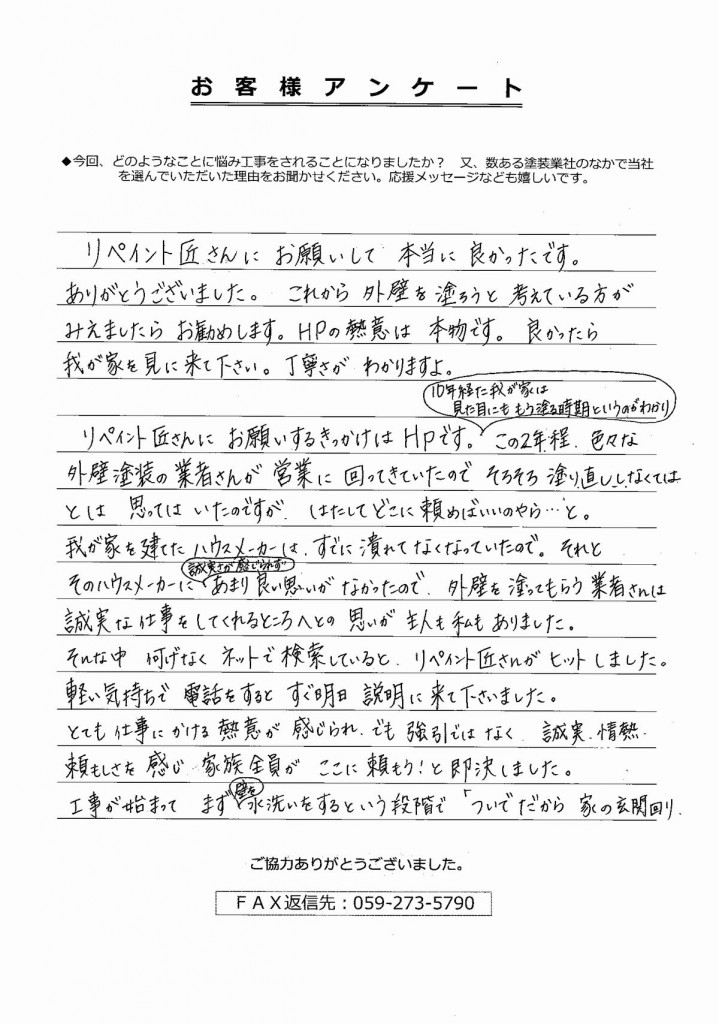 お客様アンケート
◆今回、どのようなことに悩み工事をされることになりましたか？　又、数ある塗装業社のなかで当社
を選んでいただいた理由をお聞かせください。応援メッセージなども嬉しいです。
リペイント匠さんに お願いして 本当に 良かったです。
ありがとうございました。 これから 外壁を塗ろうと 考えている方が
みえましたら お勧めします。HPの熱意は 本物です。 良かったら
我が家を見に来て下さい。丁寧さが わかりますよ。
10年経た我が家は
見た目にも もう塗る時期というのがわかり
リペイント匠さんに お願いするきっかけは HPです。 この2年程、色々な
外壁塗装の業者さんが 営業に 回ってきていたので そろそろ 塗り直ししなくては
とは 思ってはいたのですが、 はたしてどこに頼めばいいのやら…と。
我が家を建てた ハウスメーカーは、すでに潰れてなくなっていたので。それと
誠実さが感じられず
そのハウスメーカーに あまり良い思いが なかったので、 外壁を塗ってもらう業者さんは
誠実な仕事をしてくれるところへとの 思いが 主人も私も ありました。
そんな中 何げなく ネットで検索していると、リペイント匠さんが ヒットしました。
軽い気持ちで 電話をすると すぐ明日 説明に来て下さいました。
とても 仕事にかける熱意が 感じられ、でも 強引ではなく 誠実、情熱、
頼もしさを 感じ 家族全員が ここに頼もう！と即決しました。
壁を
工事が始まって まず 水洗いをするという段階で 「ついでだから 家の玄関回り、
ご協力ありがとうございました。
ＦＡＸ返信先：059-273-5790